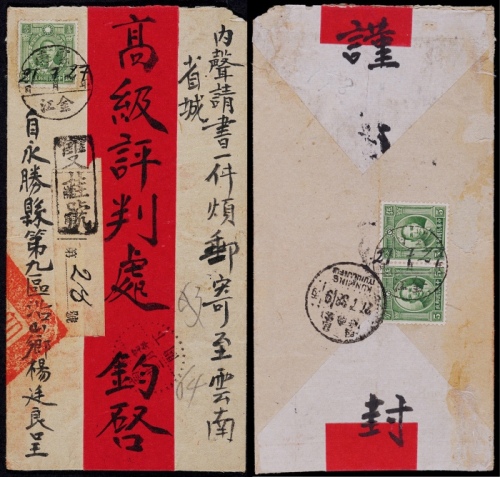 內聲請書一件煩郵寄至雲南
省城
高級評判處 鈞啓
雙掛號
第 28 號
自永勝縣第九區浩山鄉楊廷良呈
27
金江
63
64
謹
封
KUNMING